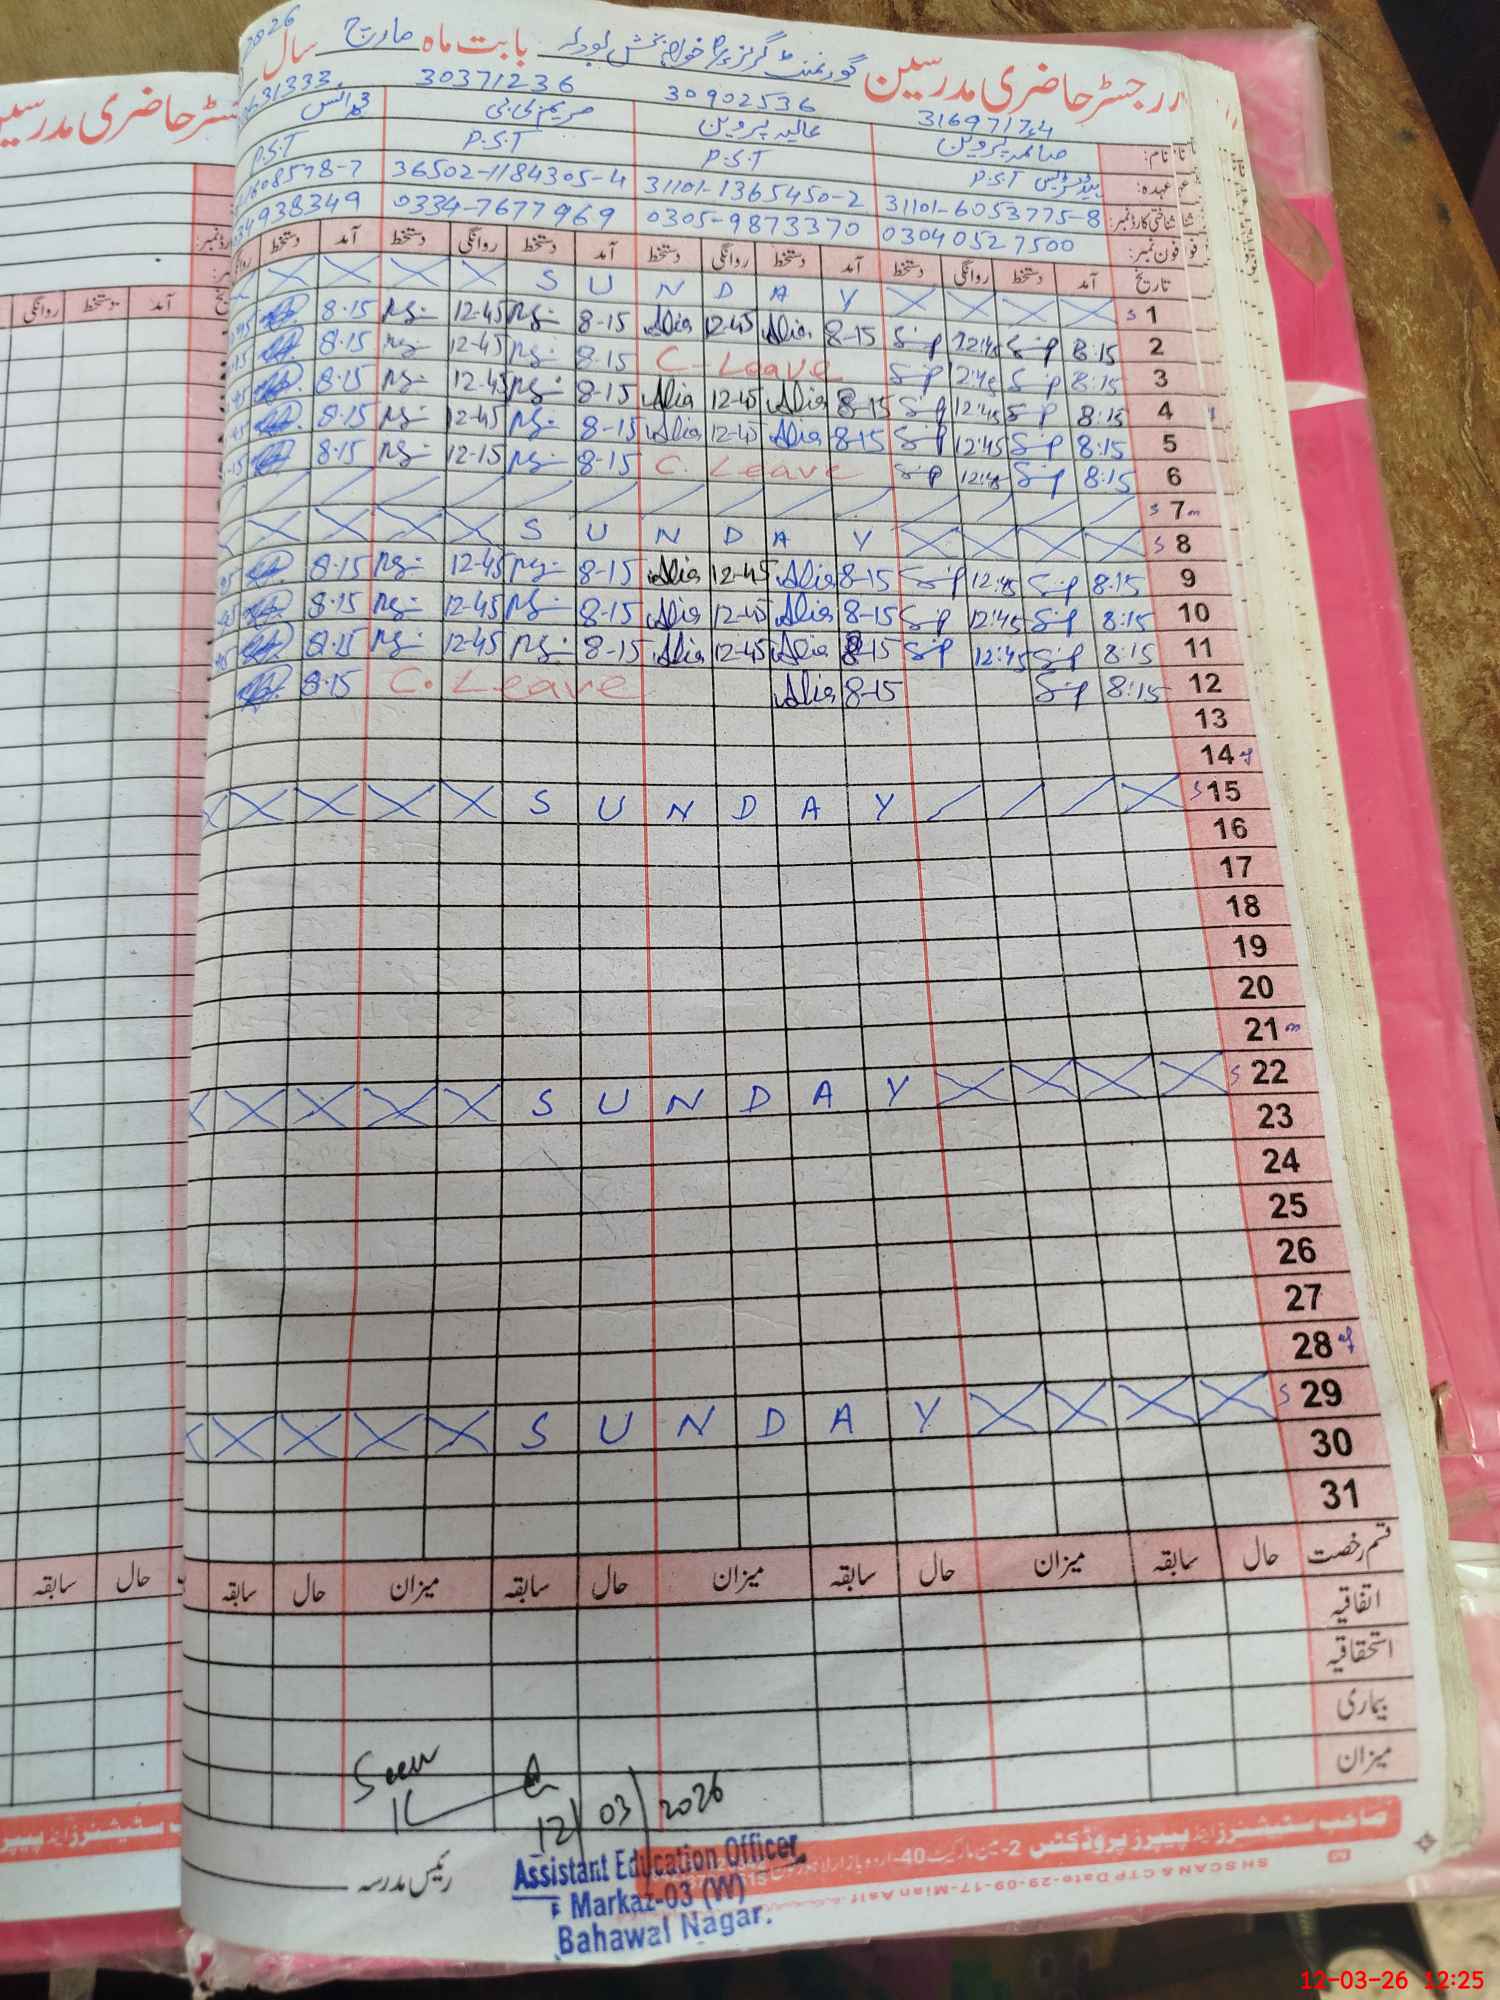 رجسٹر حاضری مدرسین گورنمنٹ گرلز خواجہ بخش لودلہ بابت ماہ مارچ سال 2026
31697174 30902536 30371236 631333
نام: صائمہ پروین عالیہ پروین مریم بی بی
عہدہ: P.S.T P.S.T P.S.T P.S.T
شناختی کارڈ نمبر: 31101-6053775-8 31101-1365450-2 36502-1184305-4 608578-7
فون نمبر: 03040527500 0305-9873370 0334-7677969 34938349
تاریخ آمد دستخط روانگی دستخط آمد دستخط روانگی دستخط آمد دستخط روانگی دستخط آمد دستخط
1 S U N D A Y
2 8:15 12:45 8-15 Alia 12-45 Alia 8-15 12-45 8.15
3 8:15 12:45 C. Leave 8-15 12-45 8.15
4 8:15 12:45 8-15 Alia 12-45 Alia 8-15 12-45 8.15
5 8:15 12:45 8-15 Alia 12-45 Alia 8-15 12-45 8.15
6 8:15 12:45 C. Leave 8-15 12-15 8.15
7
8 S U N D A Y
9 8:15 12:45 8-15 Alia 12-45 Alia 8-15 12-45 8.15
10 8:15 12:45 8-15 Alia 12-45 Alia 8-15 12-45 8.15
11 8:15 12:45 8-15 Alia 12-45 Alia 8-15 12-45 8.15
12 8:15 8-15 Alia C. Leave 8.15
13
14
15 S U N D A Y
16
17
18
19
20
21
22 S U N D A Y
23
24
25
26
27
28
29 S U N D A Y
30
31
قسم رخصت حال سابقہ میزان حال سابقہ میزان حال سابقہ میزان حال سابقہ
اتفاقیہ
استحقاقیہ
بیماری
میزان
Seen
12/03/2026
رئیس مدرسہ
Assistant Education Officer
Markaz-03 (W)
Bahawal Nagar.
صاحب سٹیشنرز اینڈ پیپرز پروڈکٹس 2-مین مارکیٹ 40-اردو بازار لاہور
SH SCAN & CTP Date-29-09-17-Mian Asif
12-03-26 12:25